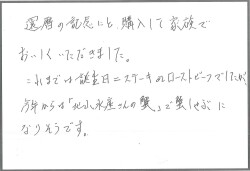 還暦の記念にと、購入して家族で
おいしくいただきました。
これまでは誕生日＝ステーキorローストビーフでしたが
今年からは「北山水産さんの蟹」で蟹しゃぶに
なりそうです。